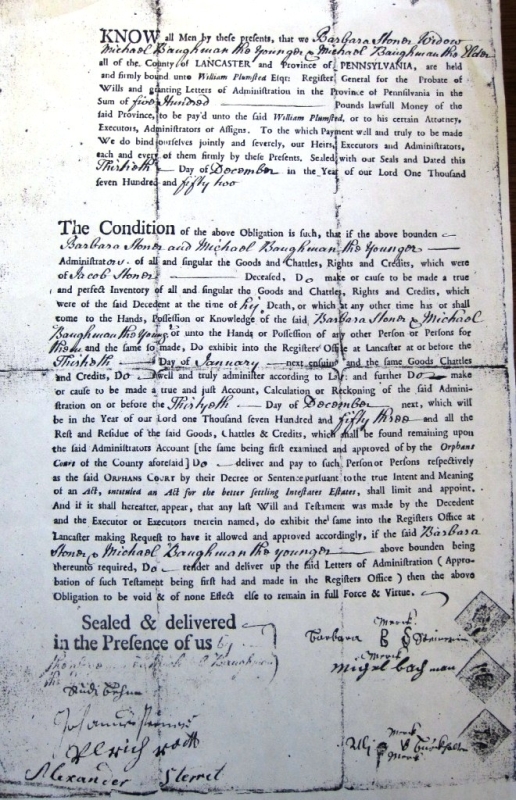 KNOW all Men by these presents, that we Barbara Stoner Widow
Michael Baughman the Younger & Michael Baughman the Elder
all of the County of LANCASTER and Province of PENNSYLVANIA, are held
and firmly bound unto William Plumsted Esqr: Register General for the Probate of
Wills and granting Letters of Administration in the Province of Pennsylvania in the
Sum of five Hundred Pounds lawfull Money of the
said Province, to be pay'd unto the said William Plumsted, or to his certain Attorney,
Executors, Administrators or Assigns. To the which Payment well and truly to be made
We do bind ourselves jointly and severly, our Heirs, Executors and Administrators,
each and every of them firmly by these Presents. Sealed with our Seals and Dated this
Thirtieth Day of December in the Year of our Lord One Thousand
seven Hundred and fifty two
The Condition of the above Obligation is such, that if the above bounden
Barbara Stoner and Michael Baughman the Younger
Administrators of all and singular the Goods and Chattles, Rights and Credits, which were
of Jacob Stoner Deceased, Do make or cause to be made a true
and perfect Inventory of all and singular the Goods and Chattles, Rights and Credits, which
were of the said Decedent at the time of his Death, or which at any time has or shall
come to the Hands, Possession or Knowledge of the said Barbara Stoner & Michael
Baughman the Young or unto the Hands or Possession of any other Person or Persons for
them and the same so made, Do exhibit into the Registers Office at Lancaster at or before the
Thirtieth Day of January next ensuing and the same Goods Chattles
and Credits, Do well and truly administer according to Law: and further Do make
or cause to be made a true and just Account, Calculation or Reckoning of the said Admini-
stration on or before the Thirtyeth Day of December next, which will
be in the Year of our Lord one Thousand seven Hundred and fifty three and all the
Rest and Residue of the said Goods, Chattles & Credits, which shall be found remaining upon
the said Administrators Account [the same being first examined and approved of by the Orphans
Court of the County aforesaid] Do deliver and pay to such Person or Persons respectively
as the said ORPHANS COURT by their Decree or Sentence pursuant to the true Intent and Meaning
of an Act, entituled an Act for the better settling Intestates Estates, shall limit and appoint.
And if it shall hereafter, appear, that any last Will and Testament was made by the Decedent
and the Executor or Executors therein named, do exhibit the same into the Registers Office at
Lancaster making Request to have it allowed and approved accordingly, if the said Barbara
Stoner & Michael Baughman the younger above bounden being
thereunto required, Do render and deliver up the said Letters of Administration (Appro-
bation of such Testament being first had and made in the Registers Office) then the above
Obligation to be void & of none Effect else to remain in full Force & Virtue.
Sealed & delivered
in the Presence of us by
Merck
Barbara B S
Merck
Michel bachman
Johannes
Ulrich roth
Merck
Alexander Sterret